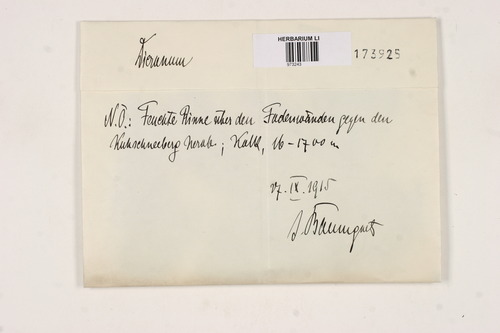 HERBARIUM LI
973243
173925
Dicranum
N.Ö.: Feuchte Rinne über den Fadenwänden gegen den
Kuhschneeberg herab; Kalk, 16-1700 m
27. IX. 1915
J. Baumgart